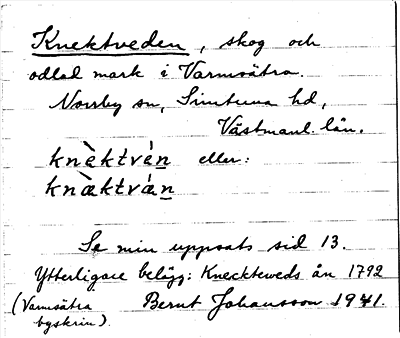 Knektveden, skog och
odlad mark i Varmsätra.
Norrby sn, Simtuna hd,
Västmanl. län.
knè̀ktvén eller:
knæ̀ktván
Se min uppsats sid 13.
Ytterligare belägg: Kneckteweds än 1792
(Varmsätra byskrin). Bernt Johansson 1941.